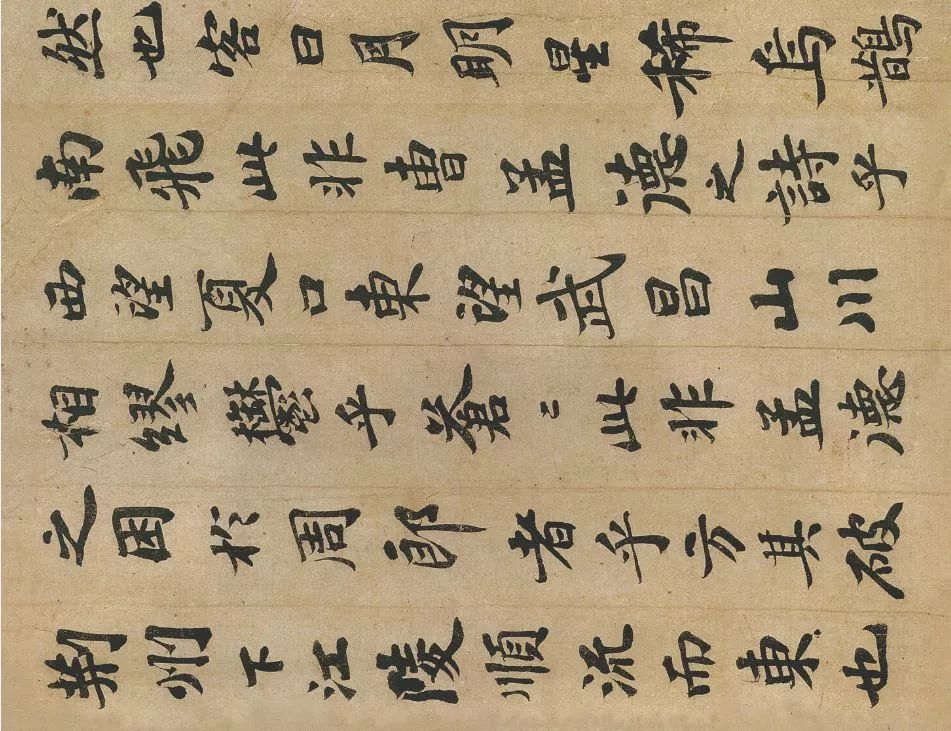 然也客曰月明星稀烏鵲
南飛此非曹孟德之詩乎
西望夏口東望武昌山川
相繆鬱乎蒼〻此非孟德
之困於周郎者乎方其破
荊州下江陵順流而東也